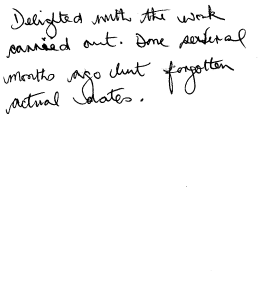 Delighted with the work
carried out. Done several
months ago but forgotten
actual dates.